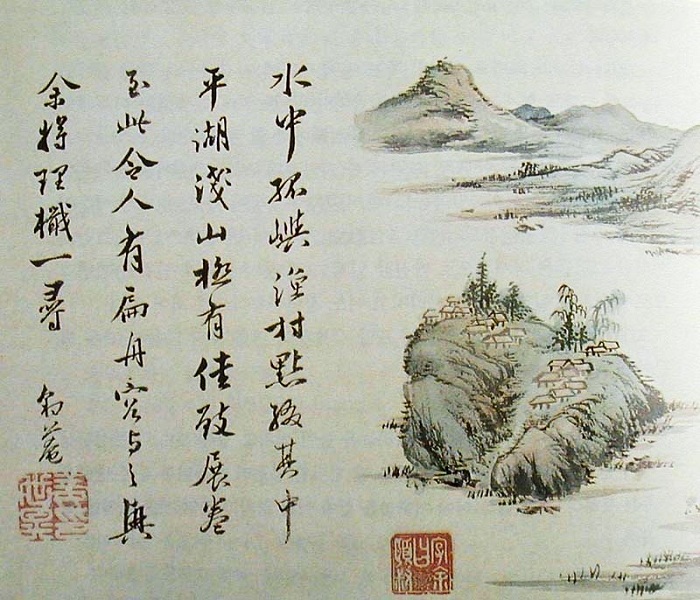 水中孤嶼漁村點綴其中
平湖淺山極有佳致展卷
至此令人有扁舟容与之興
余將理檝一尋
菴